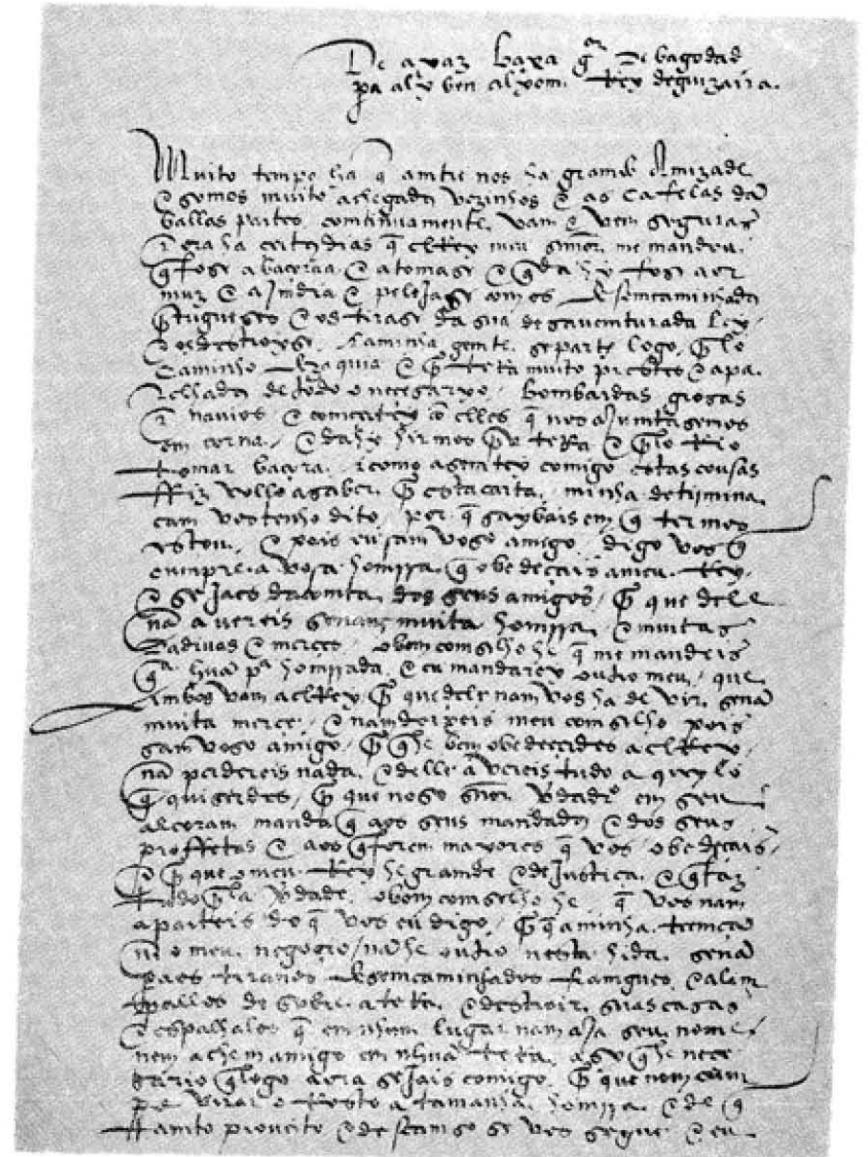 De ayaz baxa gor De bagodad
pa aly ben alyom Rey deguzaira.
Muito tempo ha q̃ amtre nos ha gramde Amizade
E somos muito achegados vezinhos E as Cafelas da
ballas partes continuamente vam E vem seguras
E era ha certos dias q̃ elRey meu snnor me mandou
q̃ fose abacoraa E atomase E q̃ dahy fose aor
muz E a Jmdia E pelejase com os desemcaminhados
purtugueses E os tirase da sua desaventurada ley
E os destroyse, E a minha gemte se parte logo pelo
Caminho E por tera muito prestes E apa
relhada de todo o necesaryo bombardas grosas
E navios E comcertey com elles q̃ nos ajuntasemos
em corna E dahy hirmos por tera E pelo Rio
tomar bacora. E como asentey comigo estas cousas
ffiz vollo a saber por esta carta minha detrimina
cam vos tenho dito por q̃ saybais em q̃ termos
estou E pois eu sam voso amigo digo vos q̃
cumpre a vosa homrra q̃ obedecais a meu Rey
E sejaes da comta dos seus amigos por que dele
nã avereis senam muita homrra E muitas
Dadivas E merces o bom comselho he q̃ me mandeis
qa hua pa homrrada E eu mandarey outro meu que
ambos vam a elRey por que dele nam vos ha de vir senã
muita merce E nam deixeis meu comselho pois
sam voso amigo por q̃ se bem obedecerdes a elRey
nã perdereis nada E delle avereis tudo aquylo
q̃ quiserdes por que noso snor em seu
alcoram manda q̃ aos seus mandados E dos seus
proffetas E aos q̃ forem mayores q̃ vos obedecais
E por que o meu Rey he gramde E de Justica E q̃ faz
tudo pela vdade o bom comselho he q̃ vos nam
aparteis do q̃ vos eu digo por q̃ a minha temcã
nẽ o meu negocio nã he outro nesta hida senã
paes tiranos desemcaminhados framgues E alim
pallos de sobre a tera E destroir suas casas
E espalhalos q̃ em nhum lugar nam aja seu nome
nem achem amigo em nhua tera aso q̃ he nece
sario q̃ logo aora sejais comigo por que nom cum
pre virar o Rosto a tamanha homrra E de q̃
tamto proveito E descamso se vos segue E eu